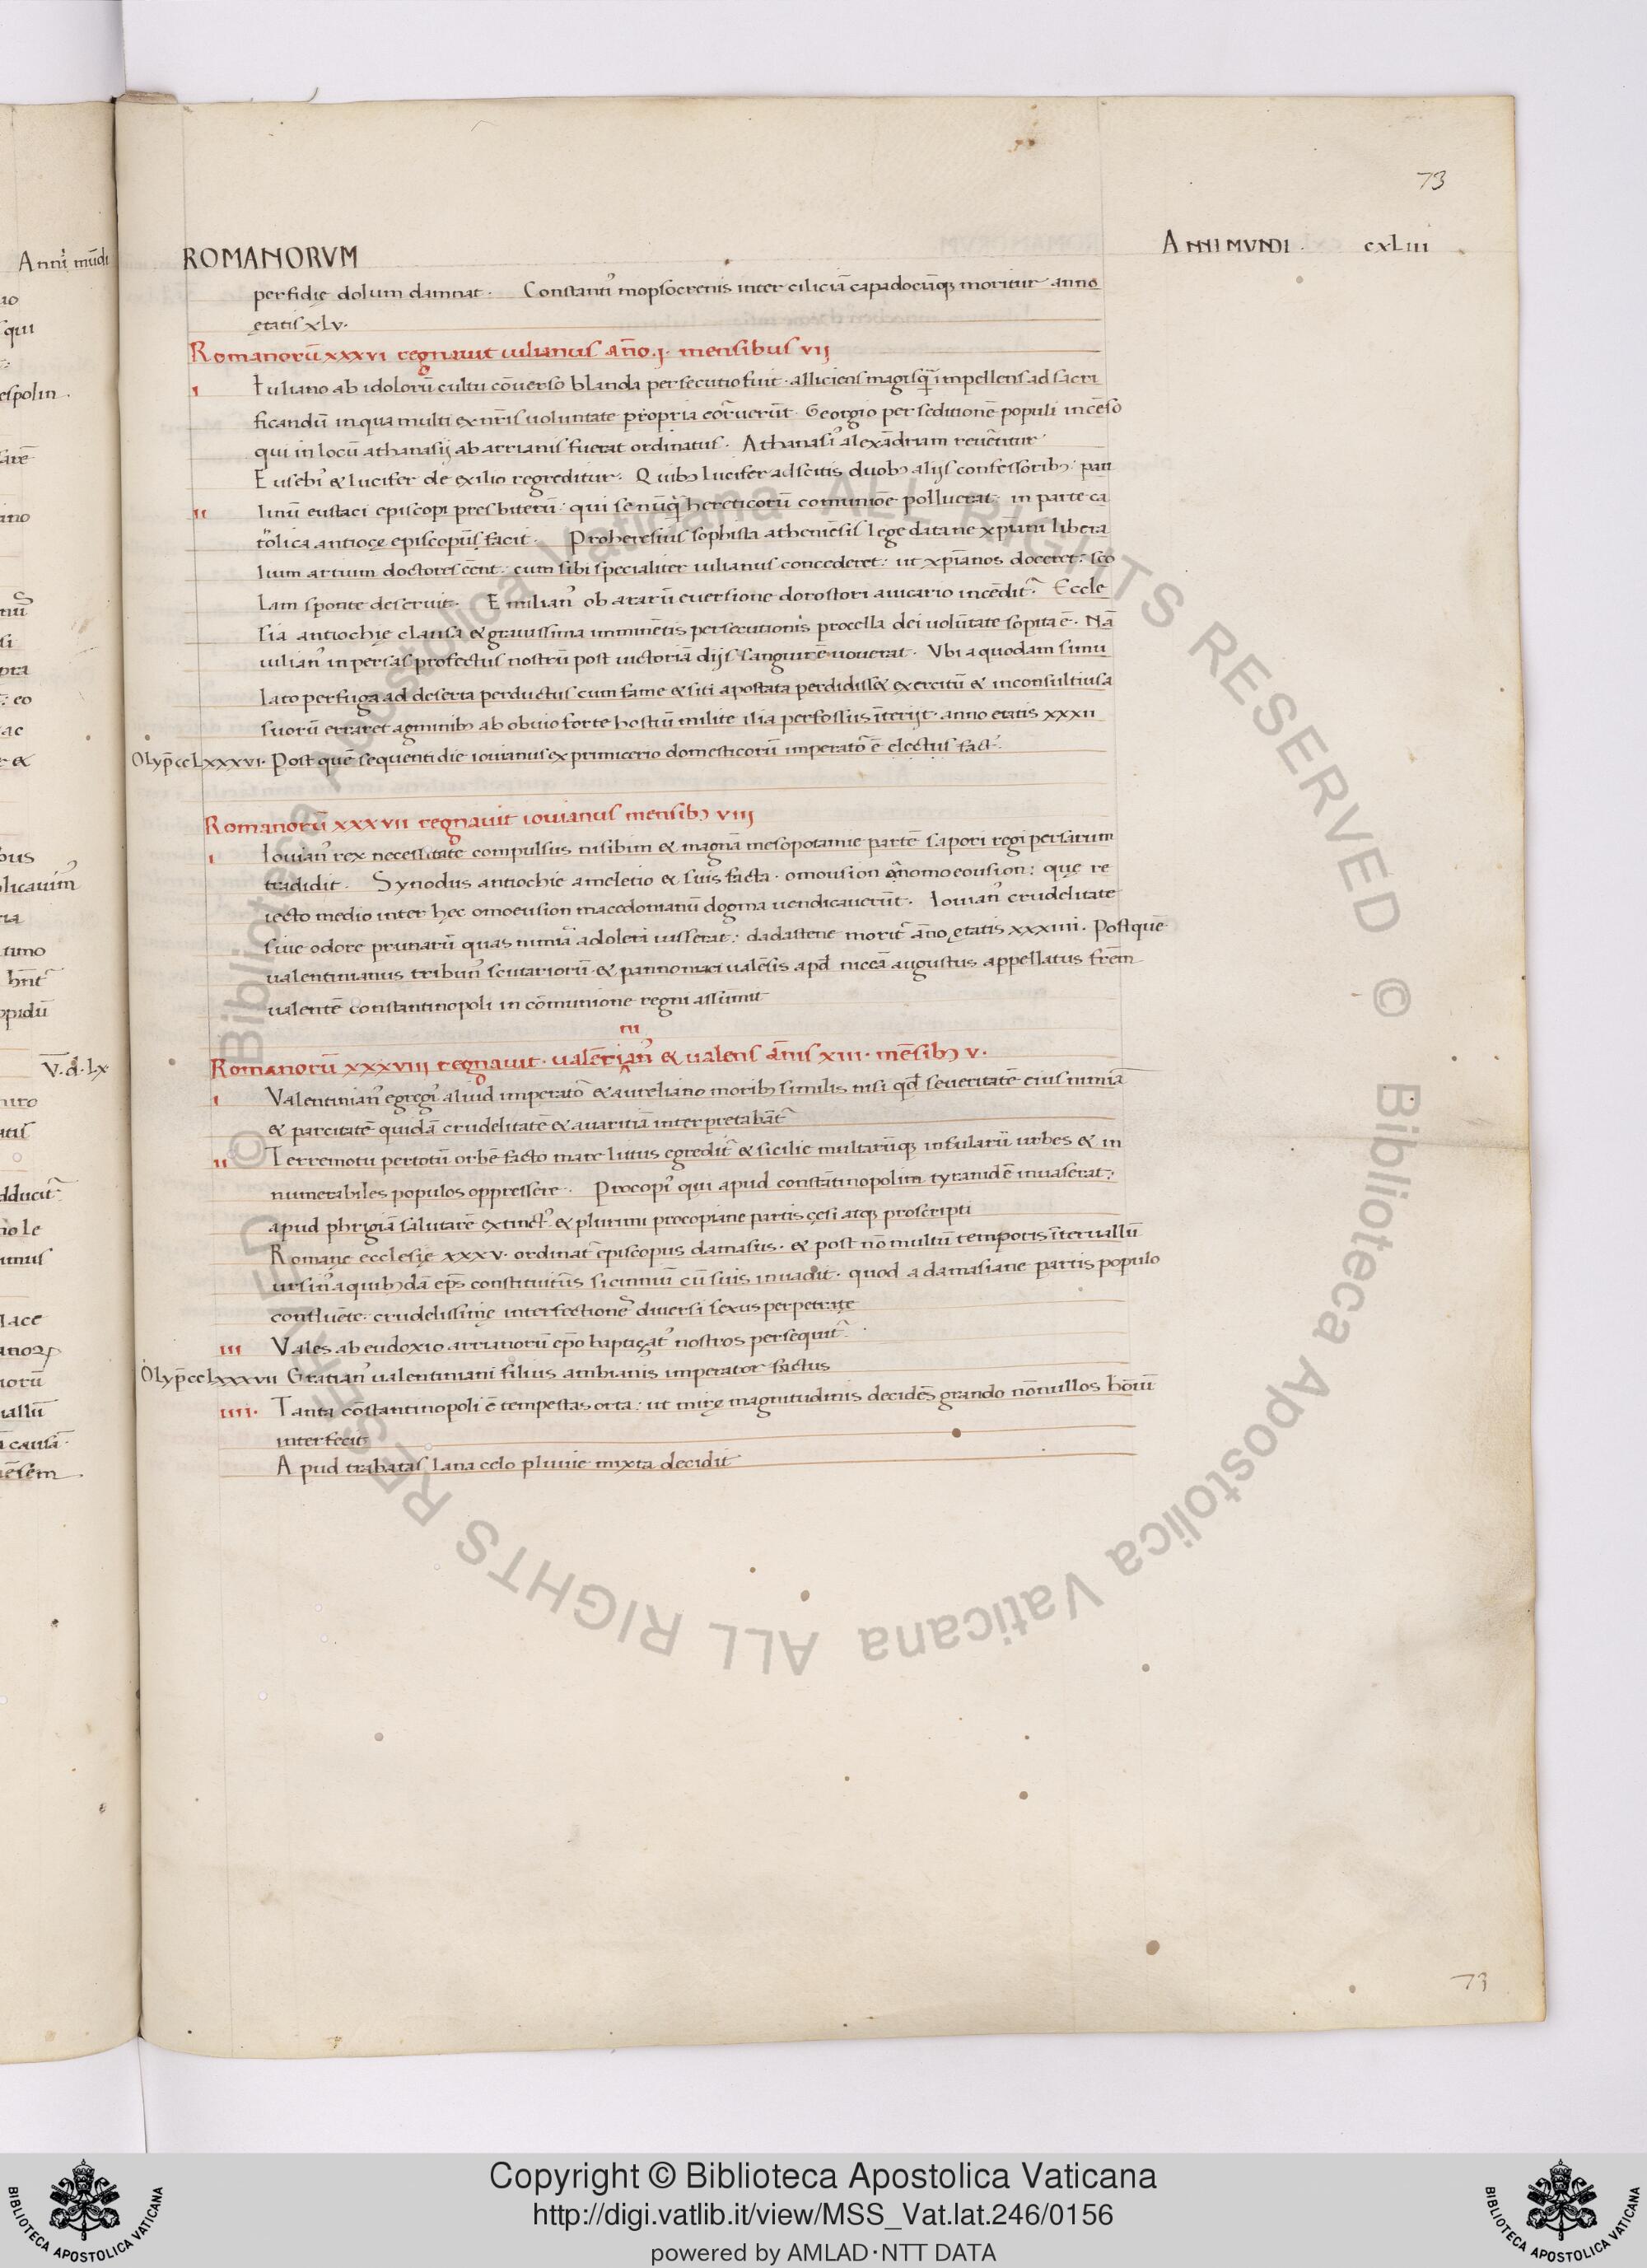 73
ROMANORVM
ANNI MVNDI . cxLiii
perfidię dolum damnat. Constanti᾽ mopsocrenis inter ciliciā capadociāq; moritur anno
ętatis xLv.
Romanorū xxxvi regnauit iulianus āno.j. mensibus vij
i Iuliano ab idolorū cultu cōuerso blanda persecutio fuit. alliciens magisq̄ impellens ad sacri
ficandū in qua multi ex nr̄is uoluntate propria corruerūt. Georgio per seditionē populi incēso
qui in locū athanasij ab arrianis fuerat ordinatus. Athanasi᾽ alexādriam reuertitur
Eusebi᾽ & lucifer de exilio regreditur: Quib; lucifer adscitis duob; alijs confessorib; pau
ii linū eustaci episcopi presbiterū: qui se nūq̄ hereticorū comuniōe polluerat. in parte ca
tolica antiocę episcopus facit. Proheresius sophista atheniēsis lege data ne xp̄iani libera
lium artium doctores cēnt: cum sibi specialiter iulianus concederet: ut xp̄ianos doceret: sco
lam sponte deseruit. Emilian᾽ ob ararū euersione dorostori auicario incēdit᾽. Eccle
sia antiochię clausa & grauissima imminētis persecutionis procella dei uolūtate sopita ē. Nā
iulian᾽ in persas profectus nostrū post uictoriā dijs sanguinē uouerat. Vbi a quodam simu
lato perfuga ad deserta perductus cum fame & siti apostata perdidiss& exercitū & inconsultius a
suorū erraret agminib; ab obuio forte hostiū milite ilia perfossus īterijt. anno etatis xxxii
Olyp̄ ccLxxxvi. Post quē sequenti die iouianus ex primicerio domesticorū imperator ē electus fact᾽.
Romanorū xxxvii regnauit iouianus mensib; viii
i Iouian᾽ rex necessitate compulsus nisibim & magnā mesopotamie partē sapori regi persarum
tradidit. Synodus antiochie a meletio & suis facta. omousion anomoeousion: quę re
iecto medio inter hęc omoeusion macedonianū dogma uendicauerūt. Iouian᾽ crudelitate
siue odore prunarū quas nimia adoleri iusserat: dadastene morit᾽ āno ętatis xxxiiii. Postquē
ualentinianus tribun᾽ scutariorū. & pannoniaci ualēsis apd̄ niceā augustus appellatus frēm
ualentē constantinopoli in cōmunione regni assūmit
ni
Romanorū xxxviii regnauit. ualērian᾽ & ualens ānis xiii. mēsib; v.
i Valentinian᾽ egregi᾽ aliud imperator & aureliano morib; similis nisi qd̄ seueritatē eius nimiā
& parcitatē quidā crudelitatē & auaritiā interpretabāt᾽
ii Terremotu per totū orbē facto mare littus egredit᾽ & sicilie multarūq; insularū urbes & in
numerabiles populos oppressere. Procopi᾽ qui apud constātinopolim tyranidē inuaserat:
apud phrigiā salutarē extinct᾽ & plurimi procopiane partis cęsi atq; proscripti
Romanę ecclesię xxxv. ordinat᾽ episcopus damasus. & post nō multū temporis īteruallū
ursin᾽ a quib;dā ep̄s constituitus sicinniū cū suis inuadit. quod a damasiane partis populo
confluēte. crudelissimę interfectiones diuersi sexus perpetratę
iii Vales ab eudoxio arrianorū ep̄o baptiçat᾽ nostros persequit᾽.
Olyp̄ ccLxxxvii Gratian᾽ ualentiniani filius ambianis imperator factus
iiii. Tanta cōstantinopoli ē tempestas orta: ut mirę magnitudinis decidēs grando nōnullos hōiū
interfecit
Apud trabatas lana celo pluuie mixta decidit
73
Copyright © Biblioteca Apostolica Vaticana
http://digi.vatlib.it/view/MSS_Vat.lat.246/0156
powered by AMLAD·NTT DATA